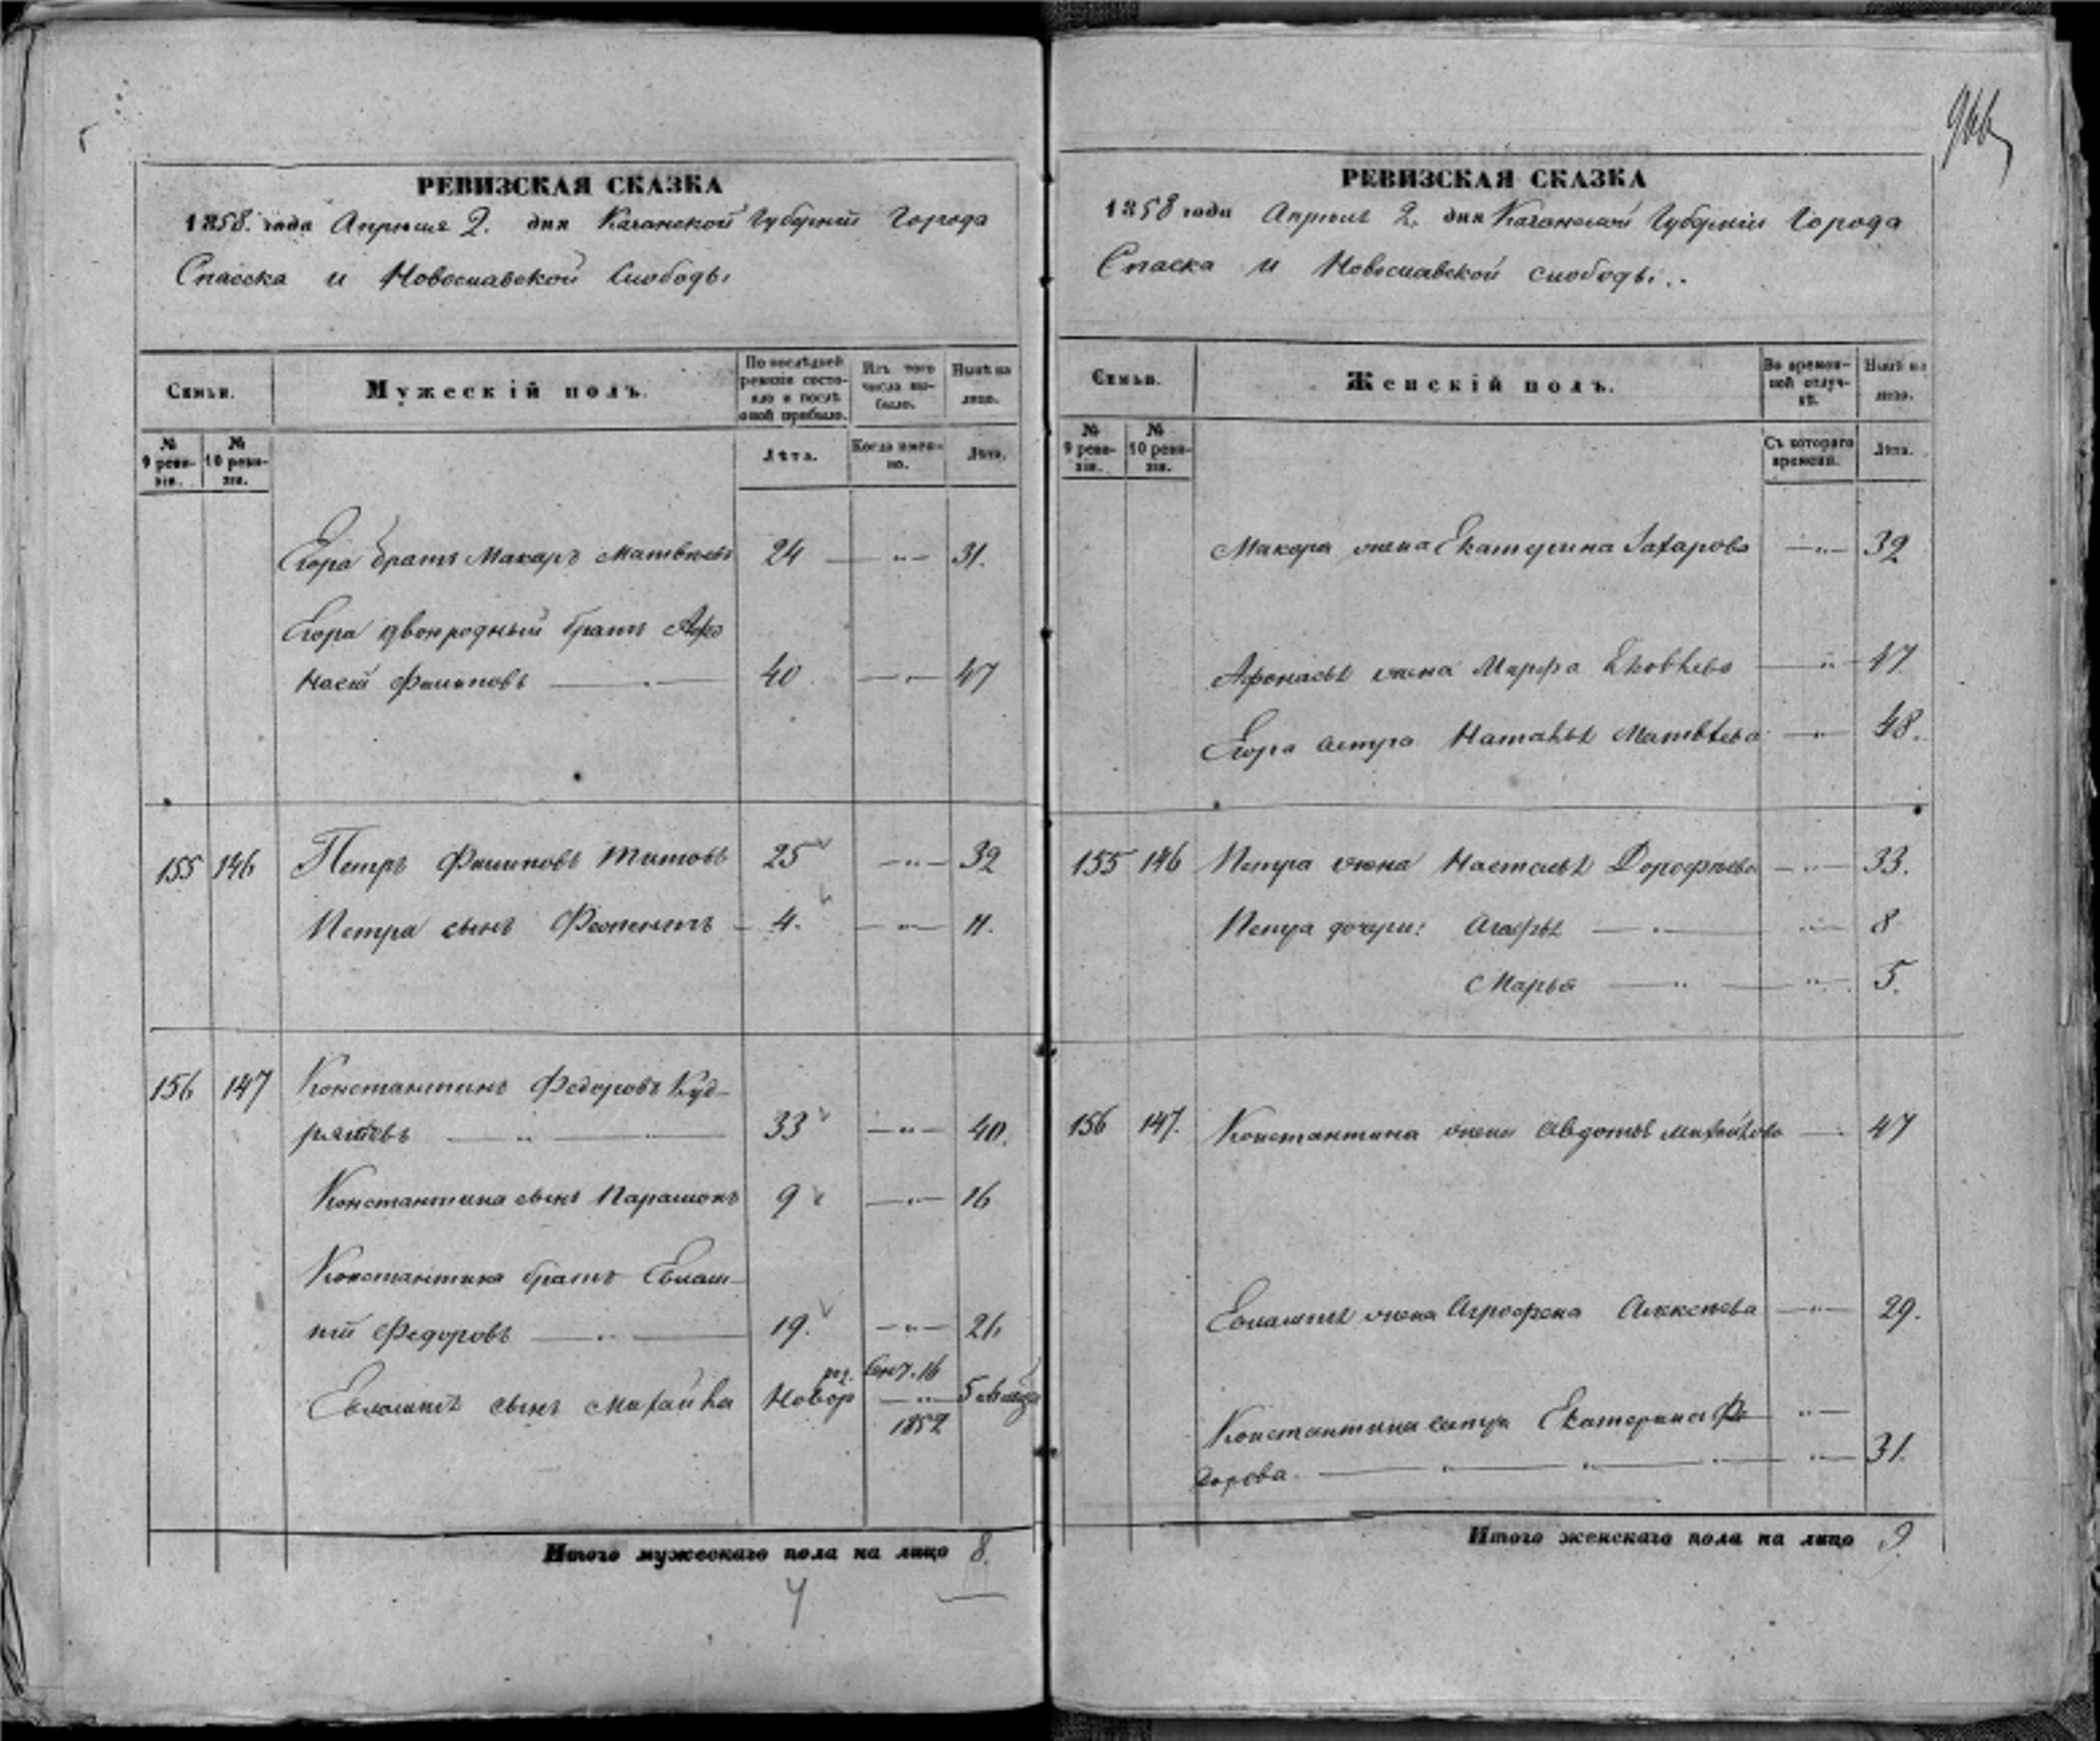 966
РЕВИЗСКАЯ СКАЗКА
1858. года Апреля 2. дня Казанской Губерніи Города
Спасска и Новоспавской Слободы
Семьи.
Мужескій полъ.
По послѣдней ревизіи состояло и послѣ оной прибыло.
Изъ того числа выбыло.
Нынѣ на лицо.
№ 9 ревизіи.
№ 10 ревизіи.
Лѣта.
Когда именно.
Лѣта.
Егора братъ Макаръ Матвѣевъ 24 — „ — 31.
Егора двоюродный братъ Афо
насій Филиповъ — 40 — „ — 47
155 146 Петръ Филиповъ Титовъ 25 — „ — 32
Петра сынъ Феопентъ — 4. — „ — 11.
156 147 Константинъ Федоровъ Куд-
ряшевъ — „ — 33 — „ — 40.
Константина сынъ Парамонъ 9 — „ — 16
Константина братъ Евлам-
пій Федоровъ — „ — 19. — „ — 26
Евлампія сынъ Михайла Новор — „ — 5 мѣсяц
1852
Итого мужескаго пола на лицо 8.
4
РЕВИЗСКАЯ СКАЗКА
1858 года Апреля 2. дня Казанской Губерніи Города
Спаска и Новоспавской слободы..
Семьи.
Женскій полъ.
Во временной отлучкѣ.
Нынѣ на лицо.
№ 9 ревизіи.
№ 10 ревизіи.
Съ котораго времени.
Лѣта.
Макара жена Екатерина Захарова — „ — 32
Афонасья жена Марфа Яковлева — „ — 47
Егора сестра Наталья Матвѣева — „ — 48.
155 146 Петра жена Настасья Дорофѣева — „ — 33.
Петра дочери: Агафья — „ — 8
Марья — „ — 5.
156 147. Константина жена Авдотья Михайлова — 47
Евлампія жена Агрофена Алексѣева — „ — 29.
Константина сестра Екатерина Фе — „ —
дорова. — „ — „ — 31.
Итого женскаго пола на лицо 9.